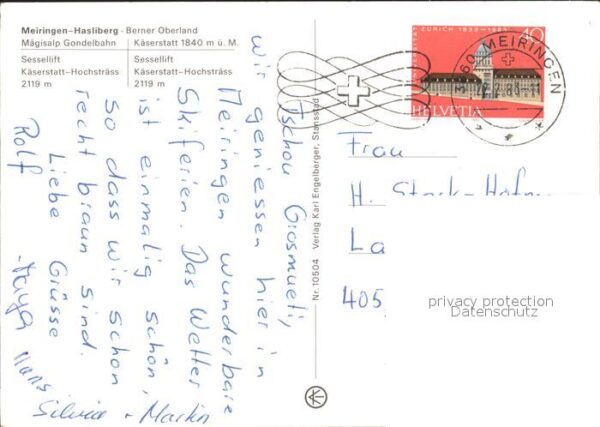 Meiringen-Hasliberg - Berner Oberland
Mägisalp Gondelbahn
Käserstatt 1840 m ü. M.
Sessellift
Käserstatt-Hochsträss
2119 m
Sessellift
Käserstatt-Hochsträss
2119 m
Tschou Grosmueti,
wir geniessen hier in
Meiringen wunderbare
Skiferien. Das Wetter
ist einmalig schön,
so dass wir schon
recht braun sind.
Liebe Grüsse
Rolf
- Maya Hans
Silvia + Martin
Nr. 10504 Verlag Karl Engelberger, Stansstad
UNIVERSITÄT ZÜRICH 1833-1983
40
HELVETIA
3860 MEIRINGEN
Frau
H. Stark-Hofm
La
405
privacy protection
Datenschutz